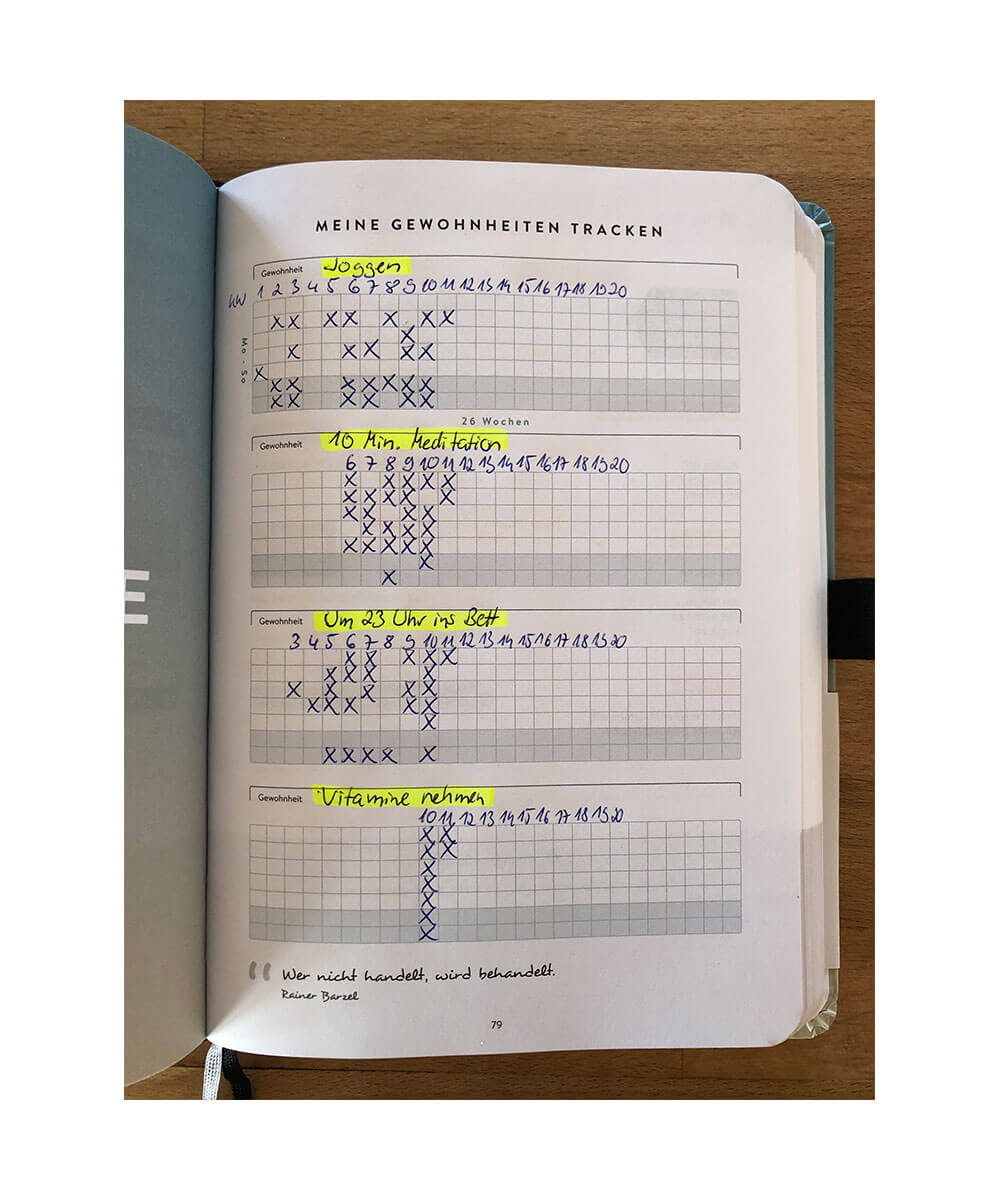 MEINE GEWOHNHEITEN TRACKEN
Gewohnheit Joggen
KW 1 2 3 4 5 6 7 8 9 10 11 12 13 14 15 16 17 18 19 20
Mo - So
X X X X X X X
X
X X X X X
X
X X X X X X X
X X X X X X
26 Wochen
Gewohnheit 10 Min. Meditation
6 7 8 9 10 11 12 13 14 15 16 17 18 19 20
X X X X X
X X X X X
X X X X
X X X X
X X X X X
X
X
Gewohnheit Um 23 Uhr ins Bett
3 4 5 6 7 8 9 10 11 12 13 14 15 16 17 18 19 20
X X X X X
X X X X
X X X X X
X X X X X
X
X X X X X
Gewohnheit Vitamine nehmen
10 11 12 13 14 15 16 17 18 19 20
X X
X X
X
X
X
X
X
E
Wer nicht handelt, wird behandelt.
Rainer Barzel
79